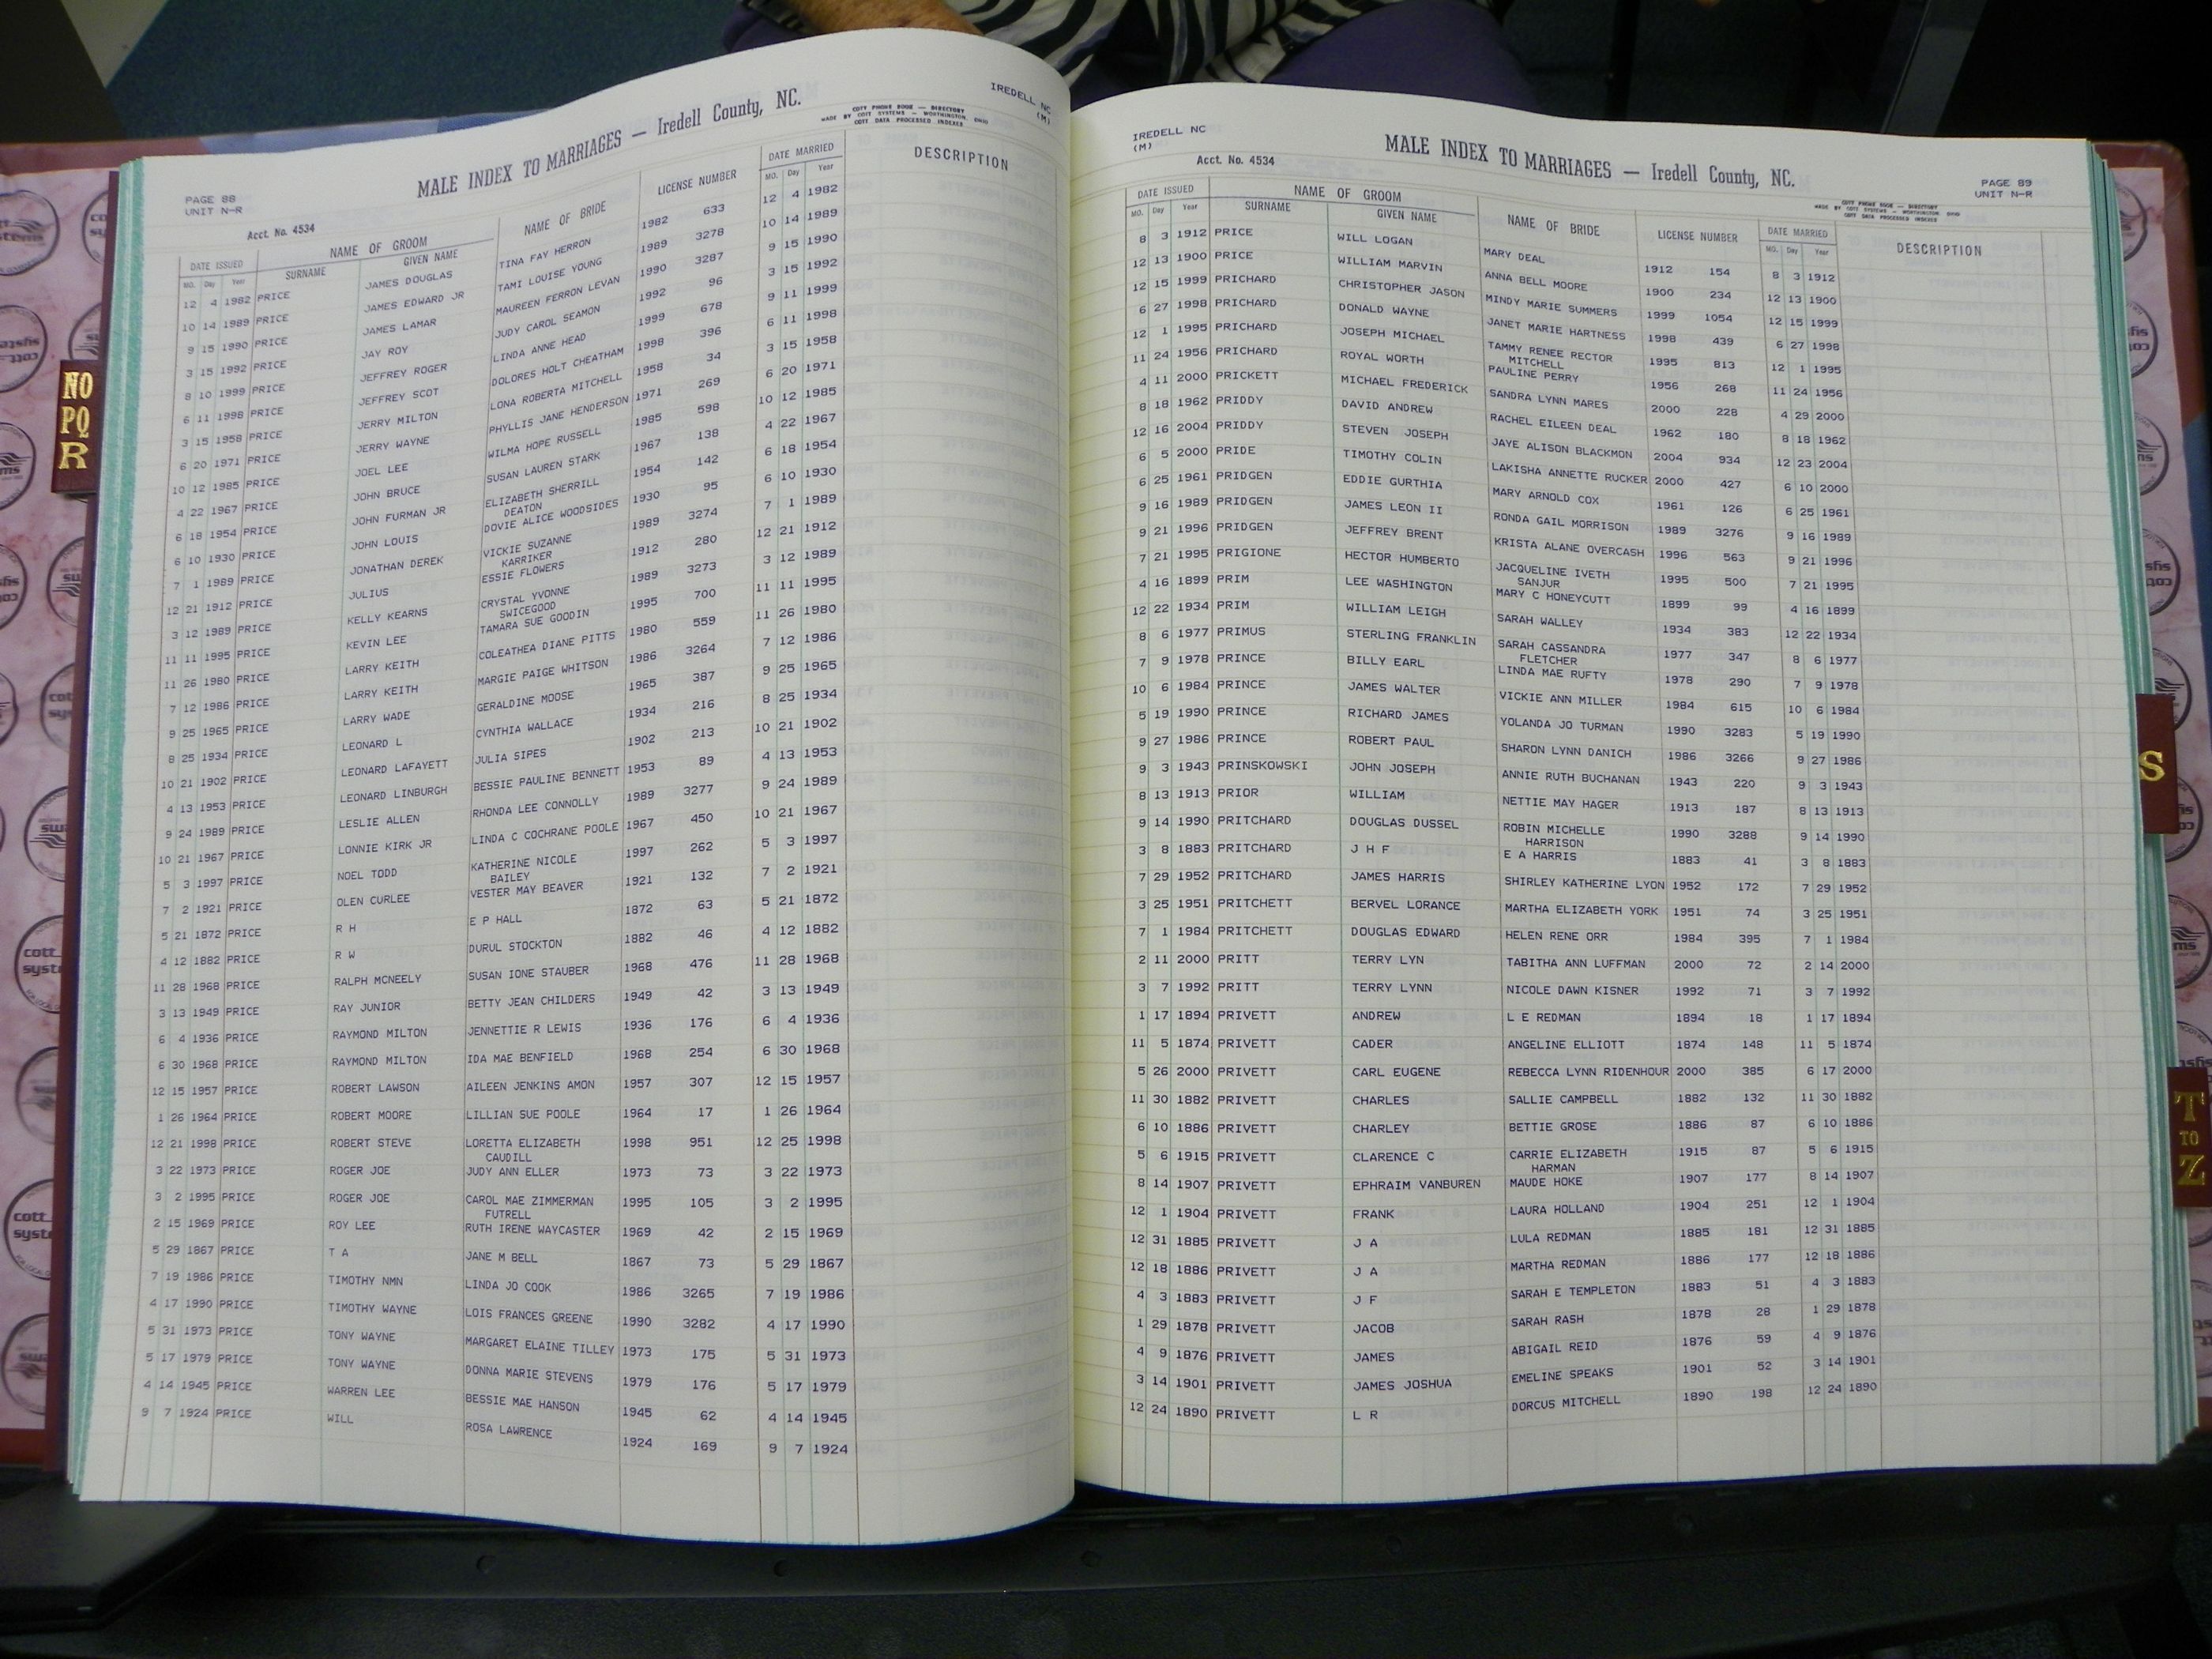 MALE INDEX TO MARRIAGES — Iredell County, NC.
COTT PHONE BOOK — DIRECTORY
MADE BY COTT SYSTEMS — WORTHINGTON, OHIO
COTT DATA PROCESSED INDEXES
IREDELL NC
(M)
PAGE 88
UNIT N-R
Acct. No. 4534
DATE ISSUED NAME OF GROOM NAME OF BRIDE LICENSE NUMBER DATE MARRIED DESCRIPTION
MO. Day Year SURNAME GIVEN NAME MO. Day Year
12 4 1982 PRICE JAMES DOUGLAS TINA FAY HERRON 1982 633 12 4 1982
10 14 1989 PRICE JAMES EDWARD JR TAMI LOUISE YOUNG 1989 3278 10 14 1989
9 15 1990 PRICE JAMES LAMAR MAUREEN FERRON LEVAN 1990 3287 9 15 1990
3 15 1992 PRICE JAY ROY JUDY CAROL SEAMON 1992 96 3 15 1992
8 10 1999 PRICE JEFFREY ROGER LINDA ANNE HEAD 1999 678 9 11 1999
6 11 1998 PRICE JEFFREY SCOT DOLORES HOLT CHEATHAM 1998 396 6 11 1998
3 15 1958 PRICE JERRY MILTON LONA ROBERTA MITCHELL 1958 34 3 15 1958
6 20 1971 PRICE JERRY WAYNE PHYLLIS JANE HENDERSON 1971 269 6 20 1971
10 12 1985 PRICE JOEL LEE WILMA HOPE RUSSELL 1985 598 10 12 1985
4 22 1967 PRICE JOHN BRUCE SUSAN LAUREN STARK 1967 138 4 22 1967
6 18 1954 PRICE JOHN FURMAN JR ELIZABETH SHERRILL 1954 142 6 18 1954
DEATON
6 10 1930 PRICE JOHN LOUIS DOVIE ALICE WOODSIDES 1930 95 6 10 1930
7 1 1989 PRICE JONATHAN DEREK VICKIE SUZANNE 1989 3274 7 1 1989
KARRIKER
12 21 1912 PRICE JULIUS ESSIE FLOWERS 1912 280 12 21 1912
3 12 1989 PRICE KELLY KEARNS CRYSTAL YVONNE 1989 3273 3 12 1989
SWICEGOOD
11 11 1995 PRICE KEVIN LEE TAMARA SUE GOODIN 1995 700 11 11 1995
11 26 1980 PRICE LARRY KEITH COLEATHEA DIANE PITTS 1980 559 11 26 1980
7 12 1986 PRICE LARRY KEITH MARGIE PAIGE WHITSON 1986 3264 7 12 1986
9 25 1965 PRICE LARRY WADE GERALDINE MOOSE 1965 387 9 25 1965
8 25 1934 PRICE LEONARD L CYNTHIA WALLACE 1934 216 8 25 1934
10 21 1902 PRICE LEONARD LAFAYETT JULIA SIPES 1902 213 10 21 1902
4 13 1953 PRICE LEONARD LINBURGH BESSIE PAULINE BENNETT 1953 89 4 13 1953
9 24 1989 PRICE LESLIE ALLEN RHONDA LEE CONNOLLY 1989 3277 9 24 1989
10 21 1967 PRICE LONNIE KIRK JR LINDA C COCHRANE POOLE 1967 450 10 21 1967
5 3 1997 PRICE NOEL TODD KATHERINE NICOLE 1997 262 5 3 1997
BAILEY
7 2 1921 PRICE OLEN CURLEE VESTER MAY BEAVER 1921 132 7 2 1921
5 21 1872 PRICE R H E P HALL 1872 63 5 21 1872
4 12 1882 PRICE R W DURUL STOCKTON 1882 46 4 12 1882
11 28 1968 PRICE RALPH MCNEELY SUSAN IONE STAUBER 1968 476 11 28 1968
3 13 1949 PRICE RAY JUNIOR BETTY JEAN CHILDERS 1949 42 3 13 1949
6 4 1936 PRICE RAYMOND MILTON JENNETTIE R LEWIS 1936 176 6 4 1936
6 30 1968 PRICE RAYMOND MILTON IDA MAE BENFIELD 1968 254 6 30 1968
12 15 1957 PRICE ROBERT LAWSON AILEEN JENKINS AMON 1957 307 12 15 1957
1 26 1964 PRICE ROBERT MOORE LILLIAN SUE POOLE 1964 17 1 26 1964
12 21 1998 PRICE ROBERT STEVE LORETTA ELIZABETH 1998 951 12 25 1998
CAUDILL
3 22 1973 PRICE ROGER JOE JUDY ANN ELLER 1973 73 3 22 1973
3 2 1995 PRICE ROGER JOE CAROL MAE ZIMMERMAN 1995 105 3 2 1995
FUTRELL
2 15 1969 PRICE ROY LEE RUTH IRENE WAYCASTER 1969 42 2 15 1969
5 29 1867 PRICE T A JANE M BELL 1867 73 5 29 1867
7 19 1986 PRICE TIMOTHY NMN LINDA JO COOK 1986 3265 7 19 1986
4 17 1990 PRICE TIMOTHY WAYNE LOIS FRANCES GREENE 1990 3282 4 17 1990
5 31 1973 PRICE TONY WAYNE MARGARET ELAINE TILLEY 1973 175 5 31 1973
5 17 1979 PRICE TONY WAYNE DONNA MARIE STEVENS 1979 176 5 17 1979
4 14 1945 PRICE WARREN LEE BESSIE MAE HANSON 1945 62 4 14 1945
9 7 1924 PRICE WILL ROSA LAWRENCE 1924 169 9 7 1924
IREDELL NC
(M)
MALE INDEX TO MARRIAGES — Iredell County, NC.
Acct. No. 4534
PAGE 89
UNIT N-R
COTT PHONE BOOK — DIRECTORY
MADE BY COTT SYSTEMS — WORTHINGTON, OHIO
COTT DATA PROCESSED INDEXES
DATE ISSUED NAME OF GROOM NAME OF BRIDE LICENSE NUMBER DATE MARRIED DESCRIPTION
MO. Day Year SURNAME GIVEN NAME MO. Day Year
8 3 1912 PRICE WILL LOGAN MARY DEAL 1912 154 8 3 1912
12 13 1900 PRICE WILLIAM MARVIN ANNA BELL MOORE 1900 234 12 13 1900
12 15 1999 PRICHARD CHRISTOPHER JASON MINDY MARIE SUMMERS 1999 1054 12 15 1999
6 27 1998 PRICHARD DONALD WAYNE JANET MARIE HARTNESS 1998 439 6 27 1998
12 1 1995 PRICHARD JOSEPH MICHAEL TAMMY RENEE RECTOR 1995 813 12 1 1995
MITCHELL
11 24 1956 PRICHARD ROYAL WORTH PAULINE PERRY 1956 268 11 24 1956
4 11 2000 PRICKETT MICHAEL FREDERICK SANDRA LYNN MARES 2000 228 4 29 2000
8 18 1962 PRIDDY DAVID ANDREW RACHEL EILEEN DEAL 1962 180 8 18 1962
12 16 2004 PRIDDY STEVEN JOSEPH JAYE ALISON BLACKMON 2004 934 12 23 2004
6 5 2000 PRIDE TIMOTHY COLIN LAKISHA ANNETTE RUCKER 2000 427 6 10 2000
6 25 1961 PRIDGEN EDDIE GURTHIA MARY ARNOLD COX 1961 126 6 25 1961
9 16 1989 PRIDGEN JAMES LEON II RONDA GAIL MORRISON 1989 3276 9 16 1989
9 21 1996 PRIDGEN JEFFREY BRENT KRISTA ALANE OVERCASH 1996 563 9 21 1996
7 21 1995 PRIGIONE HECTOR HUMBERTO JACQUELINE IVETH 1995 500 7 21 1995
SANJUR
4 16 1899 PRIM LEE WASHINGTON MARY C HONEYCUTT 1899 99 4 16 1899
12 22 1934 PRIM WILLIAM LEIGH SARAH WALLEY 1934 383 12 22 1934
8 6 1977 PRIMUS STERLING FRANKLIN SARAH CASSANDRA 1977 347 8 6 1977
FLETCHER
7 9 1978 PRINCE BILLY EARL LINDA MAE RUFTY 1978 290 7 9 1978
10 6 1984 PRINCE JAMES WALTER VICKIE ANN MILLER 1984 615 10 6 1984
5 19 1990 PRINCE RICHARD JAMES YOLANDA JO TURMAN 1990 3283 5 19 1990
9 27 1986 PRINCE ROBERT PAUL SHARON LYNN DANICH 1986 3266 9 27 1986
9 3 1943 PRINSKOWSKI JOHN JOSEPH ANNIE RUTH BUCHANAN 1943 220 9 3 1943
8 13 1913 PRIOR WILLIAM NETTIE MAY HAGER 1913 187 8 13 1913
9 14 1990 PRITCHARD DOUGLAS DUSSEL ROBIN MICHELLE 1990 3288 9 14 1990
HARRISON
3 8 1883 PRITCHARD J H F E A HARRIS 1883 41 3 8 1883
7 29 1952 PRITCHARD JAMES HARRIS SHIRLEY KATHERINE LYON 1952 172 7 29 1952
3 25 1951 PRITCHETT BERVEL LORANCE MARTHA ELIZABETH YORK 1951 74 3 25 1951
7 1 1984 PRITCHETT DOUGLAS EDWARD HELEN RENE ORR 1984 395 7 1 1984
2 11 2000 PRITT TERRY LYN TABITHA ANN LUFFMAN 2000 72 2 14 2000
3 7 1992 PRITT TERRY LYNN NICOLE DAWN KISNER 1992 71 3 7 1992
1 17 1894 PRIVETT ANDREW L E REDMAN 1894 18 1 17 1894
11 5 1874 PRIVETT CADER ANGELINE ELLIOTT 1874 148 11 5 1874
5 26 2000 PRIVETT CARL EUGENE REBECCA LYNN RIDENHOUR 2000 385 6 17 2000
11 30 1882 PRIVETT CHARLES SALLIE CAMPBELL 1882 132 11 30 1882
6 10 1886 PRIVETT CHARLEY BETTIE GROSE 1886 87 6 10 1886
5 6 1915 PRIVETT CLARENCE C CARRIE ELIZABETH 1915 87 5 6 1915
HARMAN
8 14 1907 PRIVETT EPHRAIM VANBUREN MAUDE HOKE 1907 177 8 14 1907
12 1 1904 PRIVETT FRANK LAURA HOLLAND 1904 251 12 1 1904
12 31 1885 PRIVETT J A LULA REDMAN 1885 181 12 31 1885
12 18 1886 PRIVETT J A MARTHA REDMAN 1886 177 12 18 1886
4 3 1883 PRIVETT J F SARAH E TEMPLETON 1883 51 4 3 1883
1 29 1878 PRIVETT JACOB SARAH RASH 1878 28 1 29 1878
4 9 1876 PRIVETT JAMES ABIGAIL REID 1876 59 4 9 1876
3 14 1901 PRIVETT JAMES JOSHUA EMELINE SPEAKS 1901 52 3 14 1901
12 24 1890 PRIVETT L R DORCUS MITCHELL 1890 198 12 24 1890
NO
PQ
R
S
T
TO
Z
cott
systems